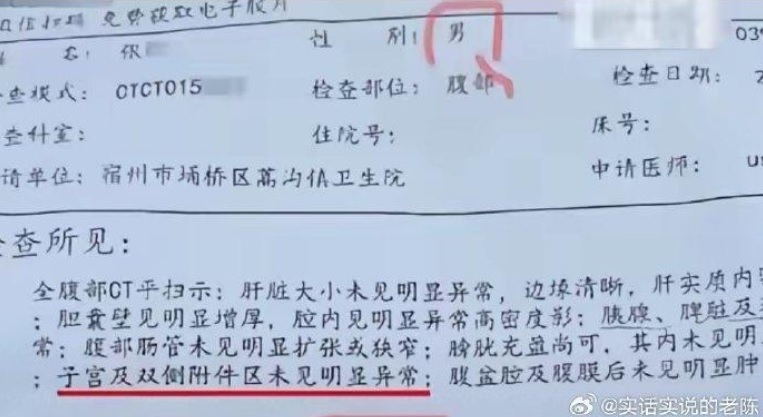 免费获取电子胶片
名: 性 别: 男 039
查模式: CTCT015 检查部位: 腹部 检查日期: 2
查科室: 住院号: 床号:
请单位: 宿州市埇桥区蒿沟镇卫生院 申请医师:
检查所见:
全腹部CT平扫示: 肝脏大小未见明显异常, 边缘清晰, 肝实质内
; 胆囊壁见明显增厚, 腔内见明显异常高密度影; 胰腺、脾脏及
常; 腹部肠管未见明显扩张或狭窄; 膀胱充盈尚可, 其内未见明
; 子宫及双侧附件区未见明显异常; 腹盆腔及腹膜后未见明显肿
@实话实说的老陈